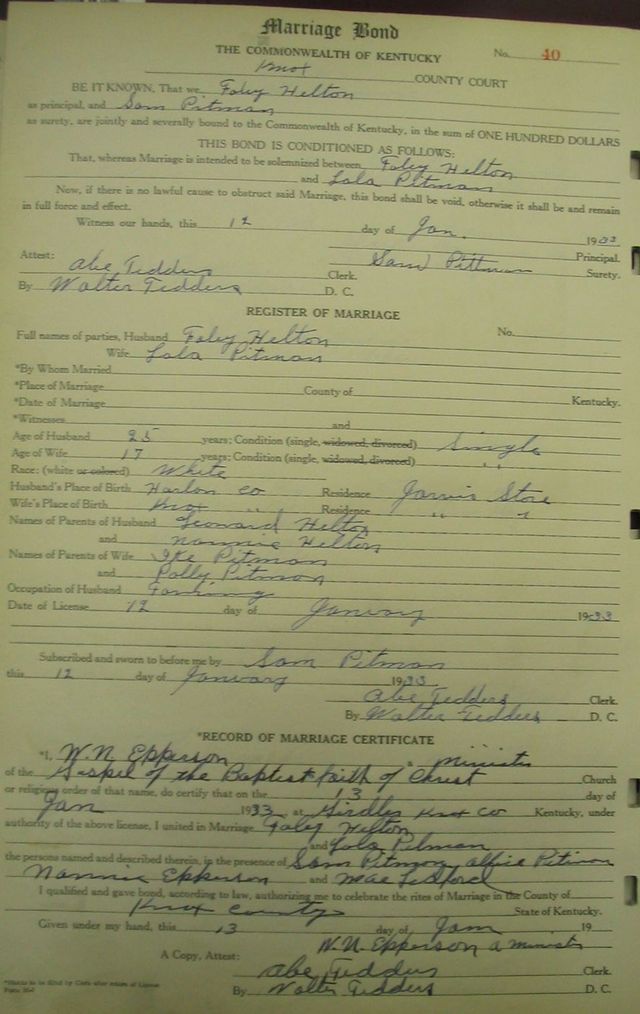 Marriage Bond
THE COMMONWEALTH OF KENTUCKY No. 40
Knox COUNTY COURT
BE IT KNOWN, That we Foley Helton
as principal, and Sam Pitman
as surety, are jointly and severally bound to the Commonwealth of Kentucky, in the sum of ONE HUNDRED DOLLARS
THIS BOND IS CONDITIONED AS FOLLOWS:
That, whereas Marriage is intended to be solemnized between Foley Helton
and Lola Pitman
Now, if there is no lawful cause to obstruct said Marriage, this bond shall be void, otherwise it shall be and remain
in full force and effect.
Witness our hands, this 12 day of Jan. 1933
Principal.
Attest: Abe Tedders Clerk. Sam Pittman Surety.
By Walter Tedders D. C.
REGISTER OF MARRIAGE
Full names of parties, Husband Foley Helton No.
Wife Lola Pitman
*By Whom Married
*Place of Marriage County of Kentucky.
*Date of Marriage
*Witnesses and
Age of Husband 25 years; Condition (single, widowed, divorced) Single
Age of Wife 17 years; Condition (single, widowed, divorced) " "
Race: (white or colored) White
Husband's Place of Birth Harlan Co Residence Jarvis Store
Wife's Place of Birth Knox " Residence " "
Names of Parents of Husband Leonard Helton
and Nannie Helton
Names of Parents of Wife Ike Pitman
and Polly Pitman
Occupation of Husband Farming
Date of License 12 day of January 1933
Subscribed and sworn to before me by Sam Pitman
this 12 day of January 1933
Abe Tedders Clerk.
By Walter Tedders D. C.
*RECORD OF MARRIAGE CERTIFICATE
*I, W. N. Epperson a minister
of the Gospel of the Baptist faith of Christ Church
or religious order of that name, do certify that on the 13 day of
Jan 1933, at Girdler Knox Co Kentucky, under
authority of the above license, I united in Marriage Foley Helton
and Lola Pitman
the persons named and described therein, in the presence of Sam Pitman, Pitman
Nannie Epperson and Mae Ledford
I qualified and gave bond, according to law, authorizing me to celebrate the rites of Marriage in the County of
Knox County State of Kentucky.
Given under my hand, this 13 day of Jan 19
W. N. Epperson a minister
A Copy, Attest: Abe Tedders Clerk.
By Walter Tedders D. C.